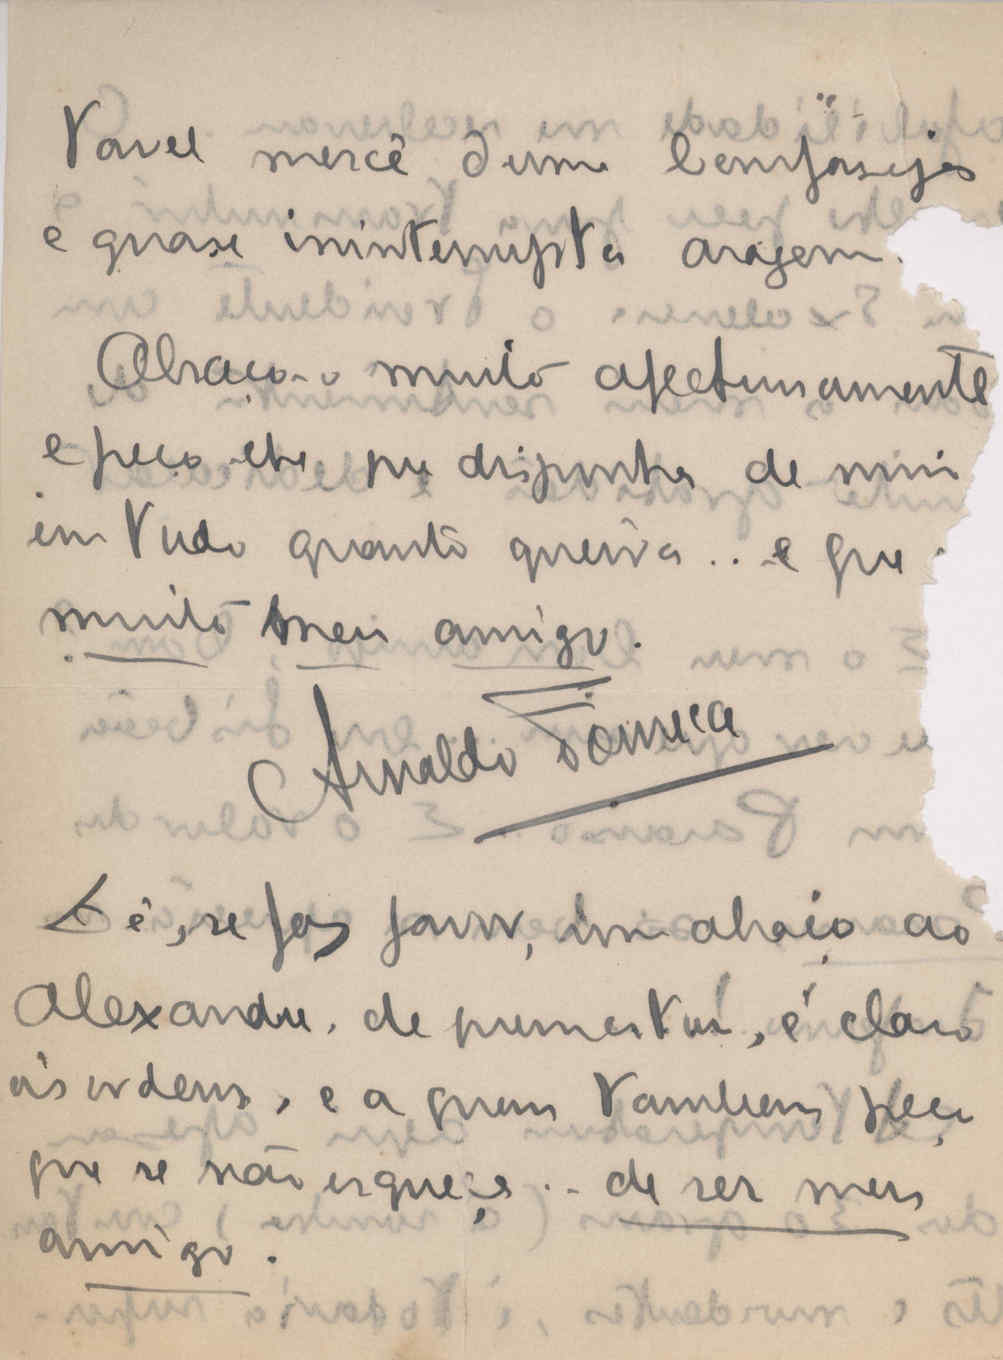 tavel mercê d'uma bemfaseja
e quase ininterrupta aragem.
Abraço-o muito afectuosamente
e peço-lhe que disponha de mim
em tudo quanto queira .. e que
muito meu amigo.
Arnaldo Fonseca
Dê, se faz favor, um abraço ao
Alexandre, de quem estou, é claro
ás ordens, e a quem tambem peço
que se não esqueça .. de ser meu
amigo.